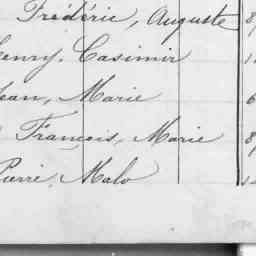 Frédéric, Auguste 8
Henry, Casimir
Jean, Marie 6
François, Marie 8
Pierre, Malo